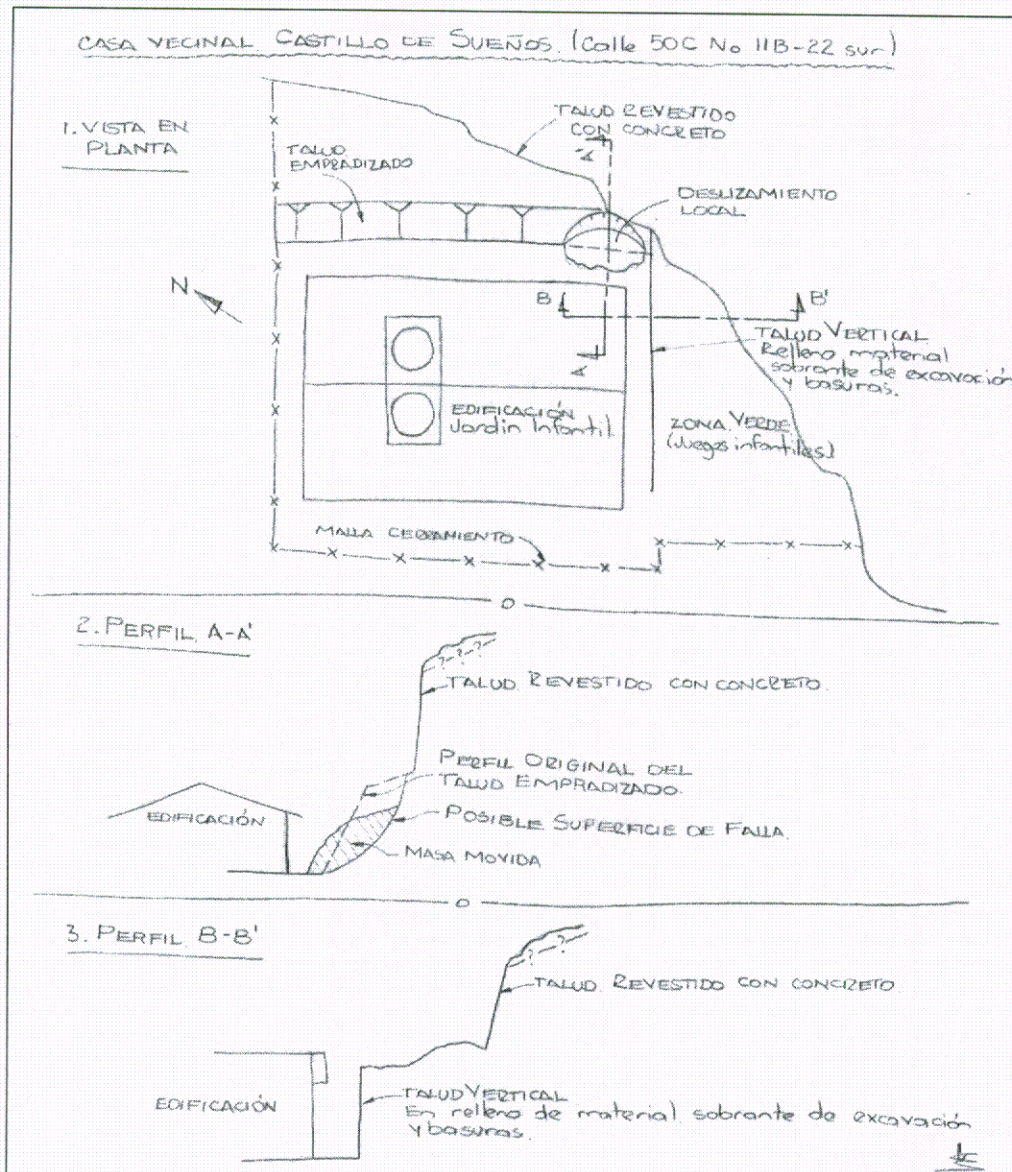 CASA VECINAL CASTILLO DE SUEÑOS. (Calle 50C No 11B-22 sur)
1. VISTA EN
PLANTA
TALUD REVESTIDO
CON CONCRETO
TALUD
EMPRADIZADO
DESLIZAMIENTO
LOCAL
N
A'
B
B'
A
TALUD VERTICAL
Relleno material
sobrante de excavación
y basuras.
EDIFICACIÓN
Jardín Infantil
ZONA VERDE
(Juegos infantiles)
MALLA CERRAMIENTO
2. PERFIL A-A'
TALUD REVESTIDO CON CONCRETO.
PERFIL ORIGINAL DEL
TALUD EMPRADIZADO.
EDIFICACIÓN
POSIBLE SUPERFICIE DE FALLA.
MASA MOVIDA
3. PERFIL B-B'
TALUD REVESTIDO CON CONCRETO
EDIFICACIÓN
TALUD VERTICAL
En relleno de material sobrante de excavación
y basuras.